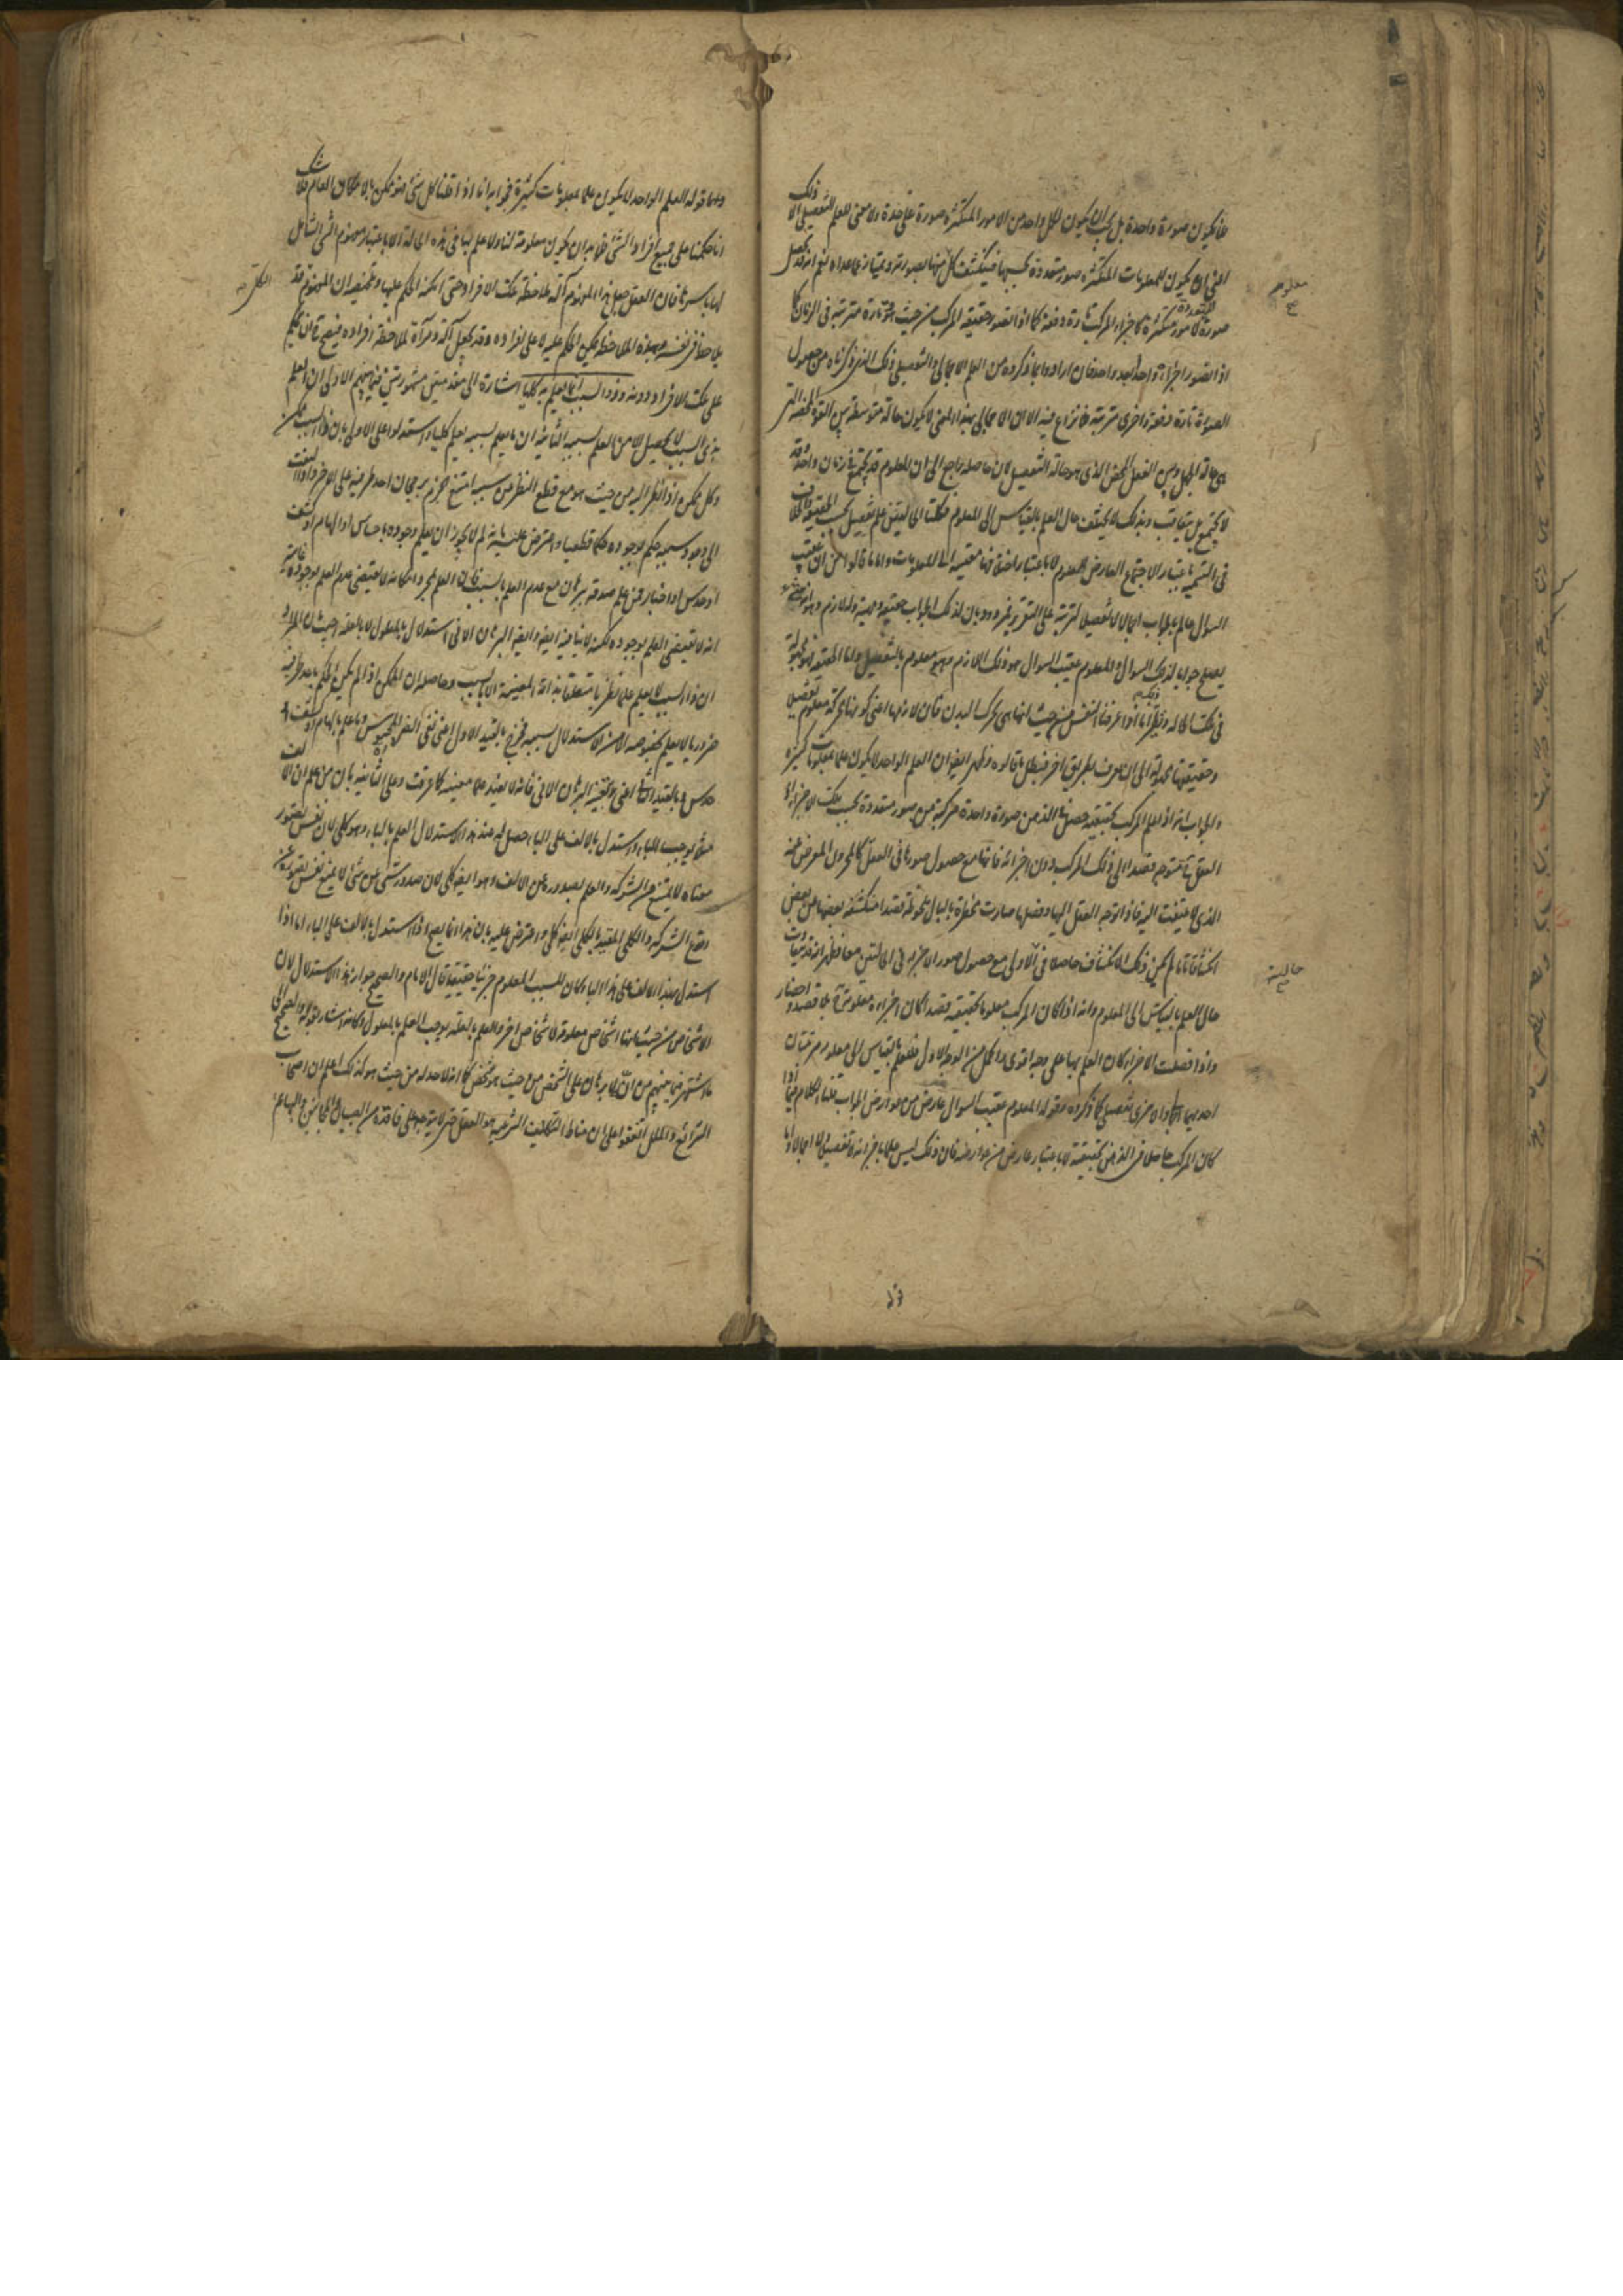 فلا يكون صورة واحدة بل يجب ان يكون لكل واحد من الامور المتكثرة صورة على حدة ولا معنى للعلم التفصيلي الا ذلك
اعنى ان يكون للمعلومات المتكثرة صور متعددة بحسبها فينكشف كل منها بصورته ويمتاز عما عداه نعم انه قد يحصل
صورة المتعددة لامور متكثرة كاجزاء المركب تارة دفعة كما اذا تصور حقيقة المركب من حيث هو وتارة مترتبة فى الزمان كما
اذا تصور اجزاؤه واحدا بعد واحد فان ارادوا بما ذكروه من العلم الاجمالى والتفصيلى ذلك الذى ذكرناه من حصول
الصورة تارة دفعة واخرى مترتبة فلا نزاع فيه الا ان الاجمالى بهذا المعنى لا يكون حالة متوسطة بين القوة المحضة التى
هى حالة الجهل وبين الفعل المحض الذى هو حالة التفصيل لان حاصله راجع الى ان المعلوم قد يجتمع فى زمان واحد وقد
لا يجتمع بل يتعاقب وبذلك لا يختلف حال العلم بالقياس الى المعلوم فكلتا الحالتين علم تفصيلى بحسب الحقيقة والخلاف
فى التسمية باعتبار الاجتماع العارض للمعلوم لا باعتبار اختلافهما مقيسة الى المعلومات واما ما قالوا من ان عقيب
السوال عالم بالجواب اجمالا لا تفصيلا لترتبه على التقرير فمردود بان لذلك الجواب حقيقة ومهية وله لازم وهو انه شئ
يصلح جوابا لذلك السوال والمعلوم عقيب السوال هو ذلك اللازم وهو معلوم بالتفصيل واما الحقيقة فهو مجهولة
فى تلك الحالة ونظيره انا اذا عرفنا النفس من حيث انها شئ محرك البدن فان لازمها اعنى كونها محركة معلوم تفصيلا
وحقيقتها مجهولة الى ان تعرف بطريق اخر فبطل ما قالوه وظهر ايضا ان العلم الواحد لا يكون علما بمعلومات كثيرة
والجواب انه اذا علم المركب بحقيقته حصل فى الذهن صورة واحدة مركبة من صور متعددة بحسب تلك الاجزاء اذ
العقل ح متوجه قصدا الى ذلك المركب دون اجزائه فانها مع حصول صورها فى العقل كالمخزون المعرض عنه
الذى لا يلتفت اليه فاذا توجه العقل اليها وفصلها صارت مخطرة بالبال ملحوظة قصدا منكشفة بعضها عن بعض
انكشافا تاما لم يكن ذلك الانكشاف حاصلا فى الاولى مع حصول صور الاجزاء فى الحالتين معا فظهر انه قد يتفاوت
حال العلم بالقياس الى المعلوم وانه اذا كان المركب معلوما بحقيقته قصدا كان اجزاؤه معلومة بلا قصد واخطار
واذا فصلت الاجزاء كان العلم بها على وجه اقوى واكمل من الوجه الاول فللعلم بالقياس الى معلومه مرتبتان
احديهما اجمالى والاخرى تفصيلى كما ذكروه وقوله المعلوم عقيب السوال عارض من عوارض الجواب قلنا الكلام فيما اذا
كان المركب حاصلا فى الذهن بحقيقته لا باعتبار عارض من عوارضه فان ذلك ليس علما باجزائه لا تفصيلا ولا اجمالا واما
معلوم
حالية
واما قوله العلم الواحد لا يكون علما بمعلومات كثيرة فجوابه انا اذا قلنا كل شئ فهو ممكن بالامكان العام فلا شك
انا حكمنا على جميع افراد الشئ فلا بد ان يكون معلومة لنا ولا علم بها فى هذه الحالة الا باعتبار مفهوم الشئ الشامل
لها باسرها فان العقل جعل هذا المفهوم آلة لملاحظة تلك الافراد حتى امكنه الحكم عليها وتلخيصه ان المفهوم قد
يلاحظ فى نفسه وبهذه الملاحظة يمكن الحكم عليه لا على افراده وقد يجعل آلة ومرآة لملاحظة افراده فيصح ح ان يحكم
على تلك الافراد دونه وذو السبب انما يعلم به كليا اشارة الى مقدمتين مشهورتين فيما بينهم الاولى ان العلم
بذى السبب لا يحصل الا من العلم بسببه الثانية ان ما يعلم بسببه يعلم كليا واستدلوا على الاولى بان ذا السبب ممكن
وكل ممكن اذا نظر اليه من حيث هو مع قطع النظر عن سببه امتنع الجزم برجحان احد طرفيه على الاخر واذا التفت
الى وجود سببه حكم بوجوده حكما قطعيا واعترض عليه بانه لم لا يجوز ان يعلم وجوده باحساس او الهام او كشف
او حدس او اخبار من علم صدقه ببرهان مع عدم العلم بالسبب فان العلم بمجرد امكانه لا يقتضى عدم العلم بوجوده غايته
انه لا يقتضى العلم بوجوده لكنه لا ينافيه ايضا وايضا البرهان الانى استدلال بالمعلول لا بالعلة اجيب بان المراد
ان ذا السبب لا يعلم علما نظريا متعلقا بذاته المعينة الا بالسبب وحاصله ان الممكن اذا لم يكن الحكم باحد طرفيه
ضروريا لا يعلم بخصوصه الا من الاستدلال بسببه فخرج بالقيد الاول اعنى نفى الضرورة المحسوس وما علم بالهام او كشف او
حدس وبالقيد الثانى اعنى خصوصية البرهان الانى فانه لا يفيد علما بعينه كما عرفت وعلى الثانية بان من علم ان الالف
مثلا يوجب الباء واستدل بالالف على الباء حصل له عند هذا الاستدلال العلم بالباء وهو كلى لان نفس تصور
معناه لا يمنع من الشركة والعلم بصدوره عن الالف وهو ايضا كلى لان صدور شئ عن شئ لا يمنع نفس تصوره عن
وقوع الشركة والكلى المقيد بالكلى ايضا كلى واعترض عليه بان هذا انما يصح اذا استدل بالالف على الباء اما اذا
استدل بهذا الالف على هذا الباء كان المسبب المعلوم جزئيا حقيقيا قال الامام والصحيح جواز هذا الاستدلال لان
الاشخاص من حيث انها اشخاص معلومة لاشخاص اخر والعلم بالعلة يوجب العلم بالمعلول وكانه اشار بقوله والصحيح الى
ما اشتهر فيما بينهم من انه لا برهان على الشخص من حيث هو شخص كما انه لا حد له من حيث هو كذلك اعلم ان اصحاب
الشرائع والملل اتفقوا على ان مناط التكاليف الشرعية هو العقل حتى لا يتوجه على فاقده من الصبيان والمجانين والبهائم